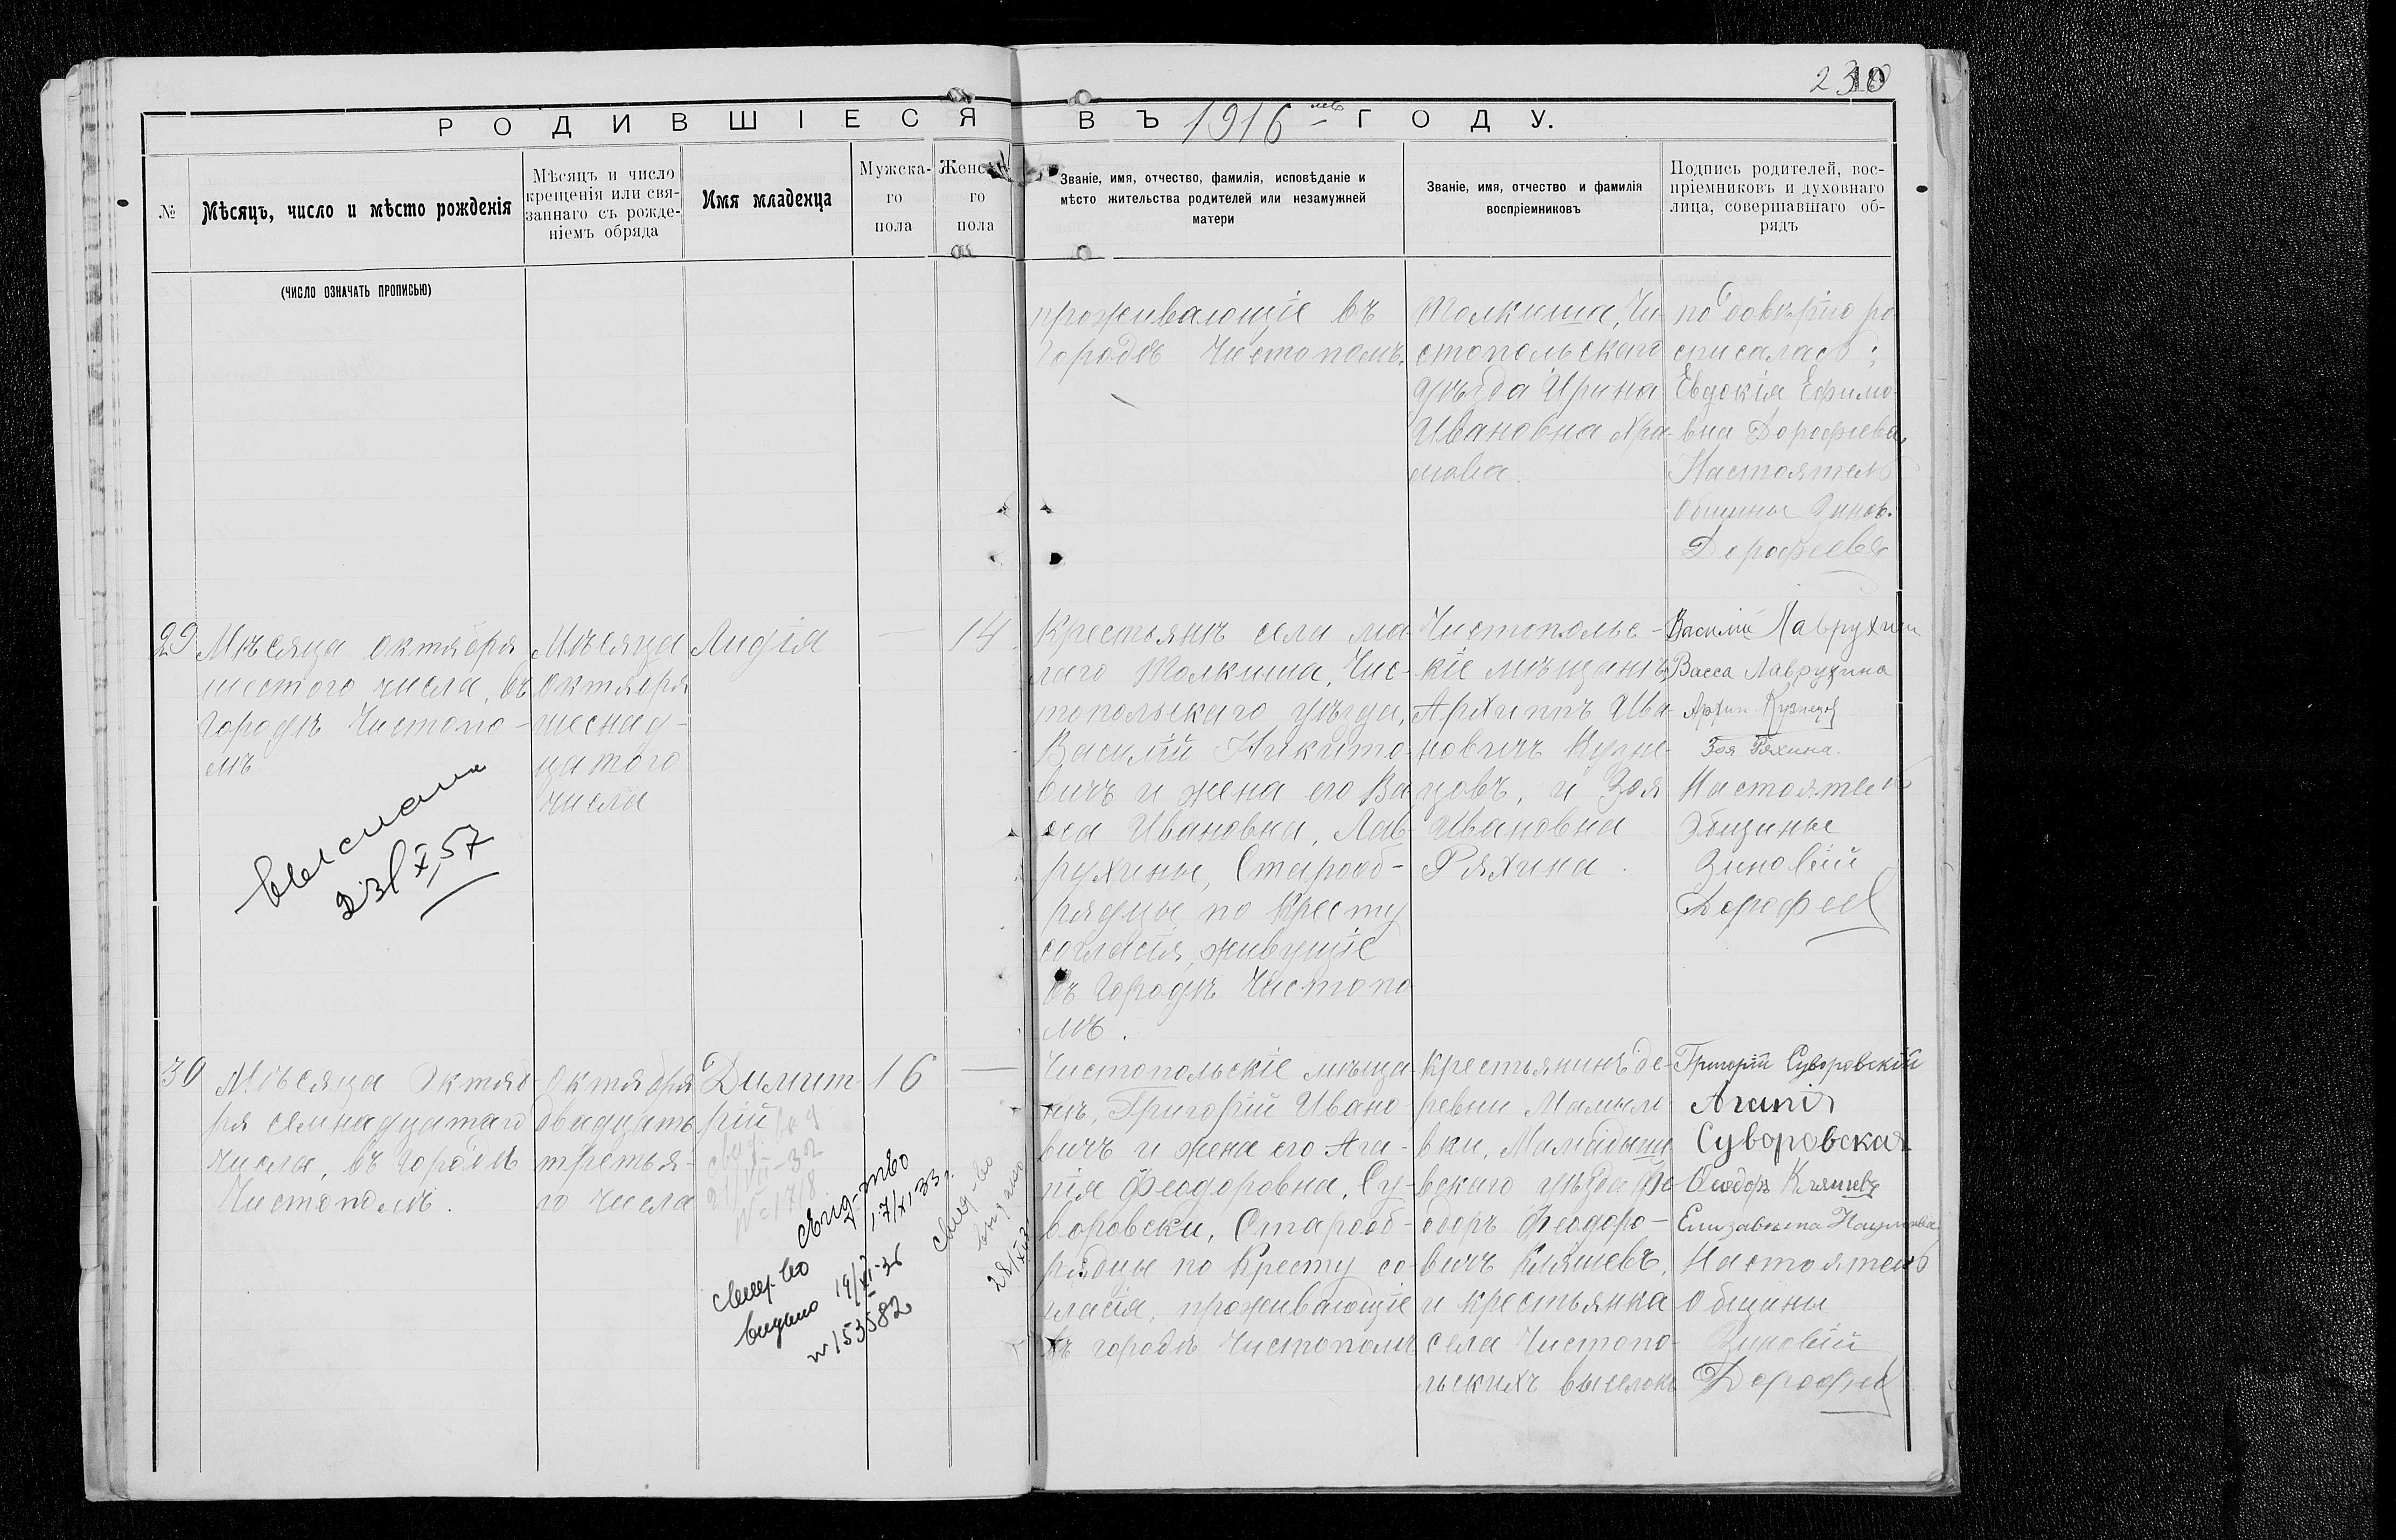 230
10
РОДИВШІЕСЯ ВЪ 1916 мъ ГОДУ.
№
Мѣсяцъ, число и мѣсто рожденія
Мѣсяцъ и число
крещенія или свя-
заннаго съ рожде-
ніемъ обряда
Имя младенца
Мужска-
го
пола
Женска
го
пола
Званіе, имя, отчество, фамилія, исповѣданіе и
мѣсто жительства родителей или незамужней
матери
Званіе, имя, отчество и фамилія
воспріемниковъ
Подпись родителей, вос-
пріемниковъ и духовнаго
лица, совершавшаго об-
рядъ
(ЧИСЛО ОЗНАЧАТЬ ПРОПИСЬЮ)
проживающіе въ
городѣ Чистополѣ.
Толкиша, Чи
стопольскаго
уѣзда Ирина
Ивановна Хра-
мова.
по довѣрію ро
списалась:
Евдокія Ефимо
вна Дорофеева,
Настоятель
общины Зинов.
Дорофеевъ
29
Мѣсяца октября
шестого числа, въ
городѣ Чистопо-
лѣ
Мѣсяца
октября
шеснад-
цатого
числа
Лидія
—
14
Крестьянѣ села ма
лаго Толкиша, Чис-
топольскаго уѣзда,
Василій Никито-
вичъ и жена его Ва
сса Ивановна, Лав-
рухины, Старооб-
рядцы по Кресту
согласія, живущіе
въ городѣ Чистопо
лѣ.
Чистопольс-
кіе мѣщанѣ
Архиппъ Ива-
новичъ Кузне-
цовъ, и Зоя
Ивановна
Ряхина.
Василій Лаврухин
Васса Лаврухина
Архип Кузнецов
Зоя Ряхина.
Настоятель
Общины
Зиновій
Дорофеев
выслана
23/X,57
30
Мѣсяца Октяб-
ря семнадцатаго
числа, въ городѣ
Чистополѣ.
Октября
двадцать
третья-
го числа
Димит-
рій
16
—
Чистопольскіе мѣща
нѣ, Григорій Ивано-
вичъ и жена его Ага-
пія Феодоровна, Су-
воровски, Старооб-
рядцы по Кресту со-
гласія, проживающіе
въ городѣ Чистополѣ
Крестьянинъ де-
ревни Мамыло
вки, Мамадыш
вскаго уѣзда Фе
одоръ Феодоро-
вичъ Клюшевъ,
и крестьянка
села Чистопо-
льскихъ выселокъ
Григорій Суворовскій
Агапія
Суворовская
Елизавета Наумова
Настоятель
общины
Зиновій
Дорофеев
21/VII-32
№ 1718
свид-тво
17/XI 33 г.
свид-во
выдано 19/XI-36
№ 153582
свид-во
выдано